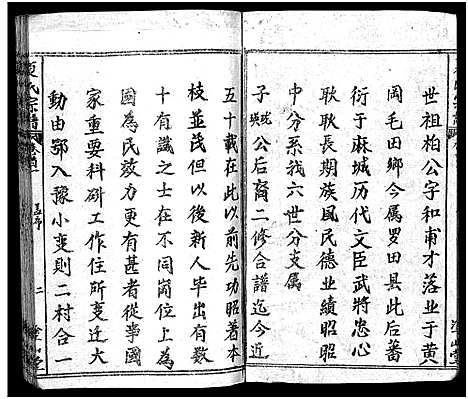 世祖柏公字和甫才落业于黄
岡毛田鄉今属罗田县此后蕃
衍于麻城历代文臣武將忠心
耿耿長期族風民德业績昭昭
中分系我六世分支属
子珖公后裔二修合譜迄今近
五十載在此以前先功昭著本
枝並茂但以后新人毕出有数
十有識之士在不同崗位上為
國為民效力更有甚者從事國
家重要科研工作住所变迁大
動由鄂入豫小变則二村合一
氏宗譜
卷首
二
堂